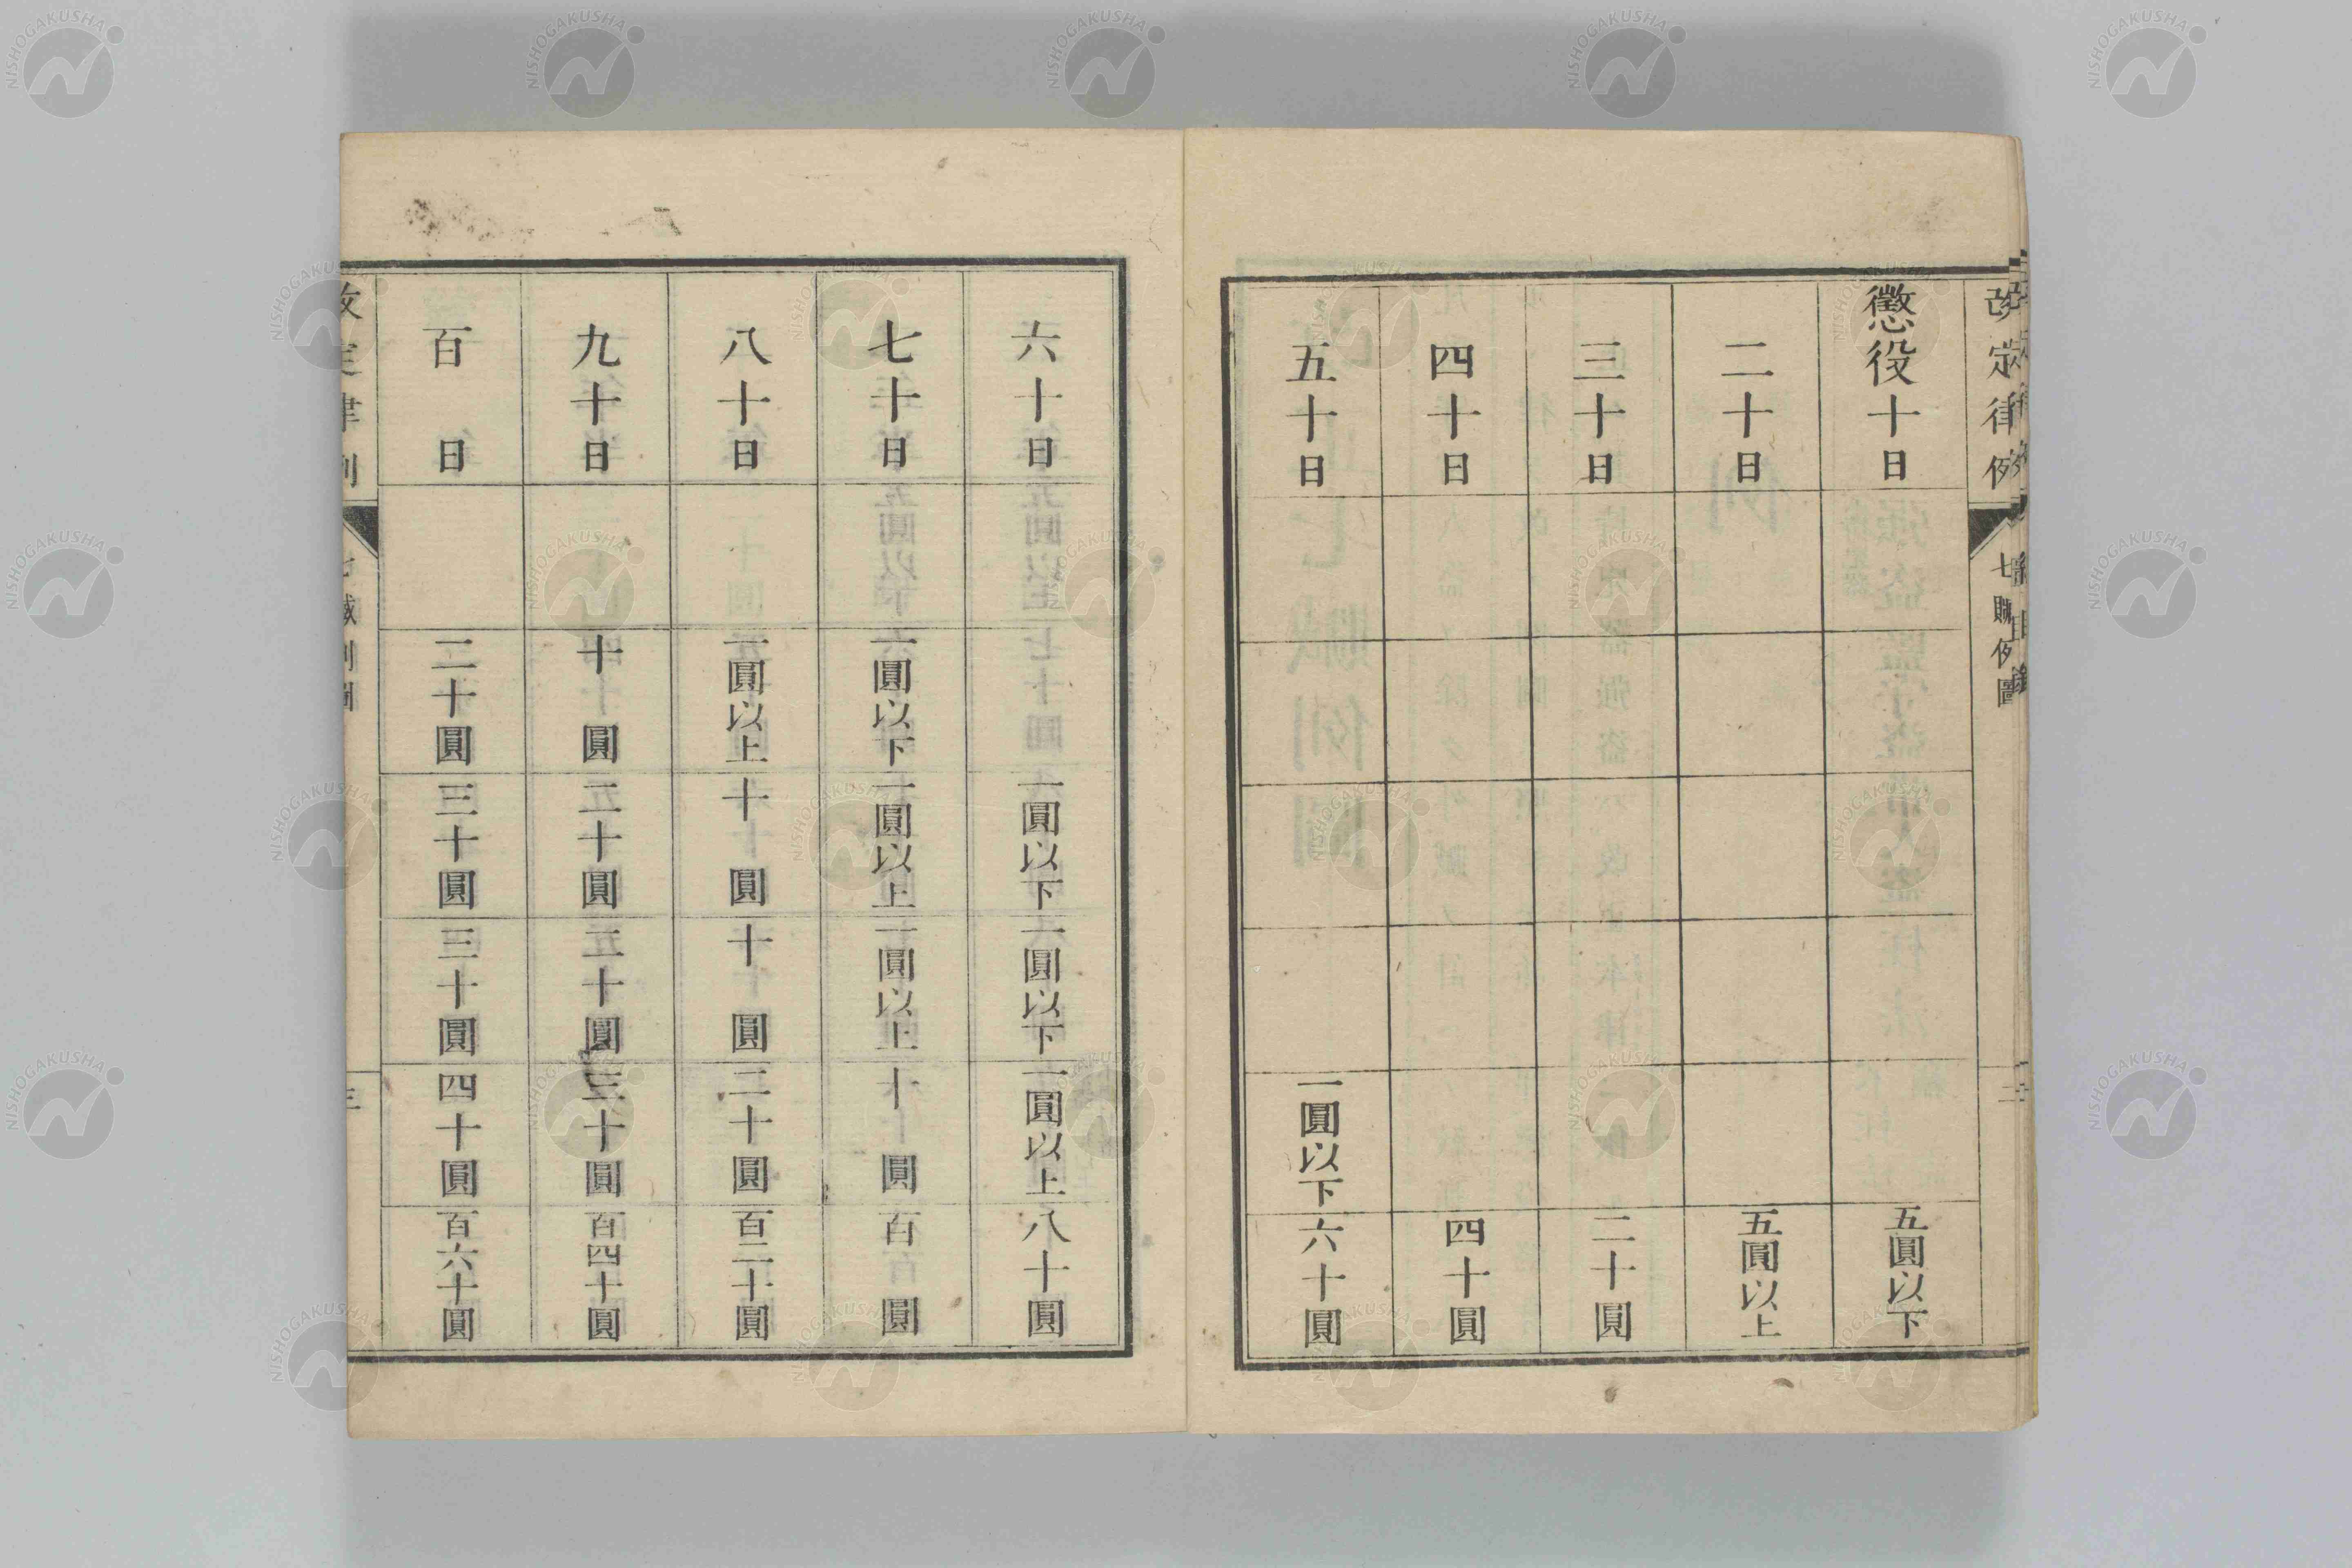 改定律例
七贓例圖
懲役十日
五圓以下
二十日
五圓以上
三十日
二十圓
四十日
四十圓
五十日
一圓以下
六十圓
六十日
一圓以下
一圓以下
一圓以上
八十圓
七十日
一圓以下
一圓以上
一圓以上
十圓
百圓
八十日
一圓以上
十圓
十圓
二十圓
百二十圓
九十日
十圓
二十圓
二十圓
三十圓
百四十圓
百日
二十圓
三十圓
三十圓
四十圓
百六十圓
NISHOGAKUSHA